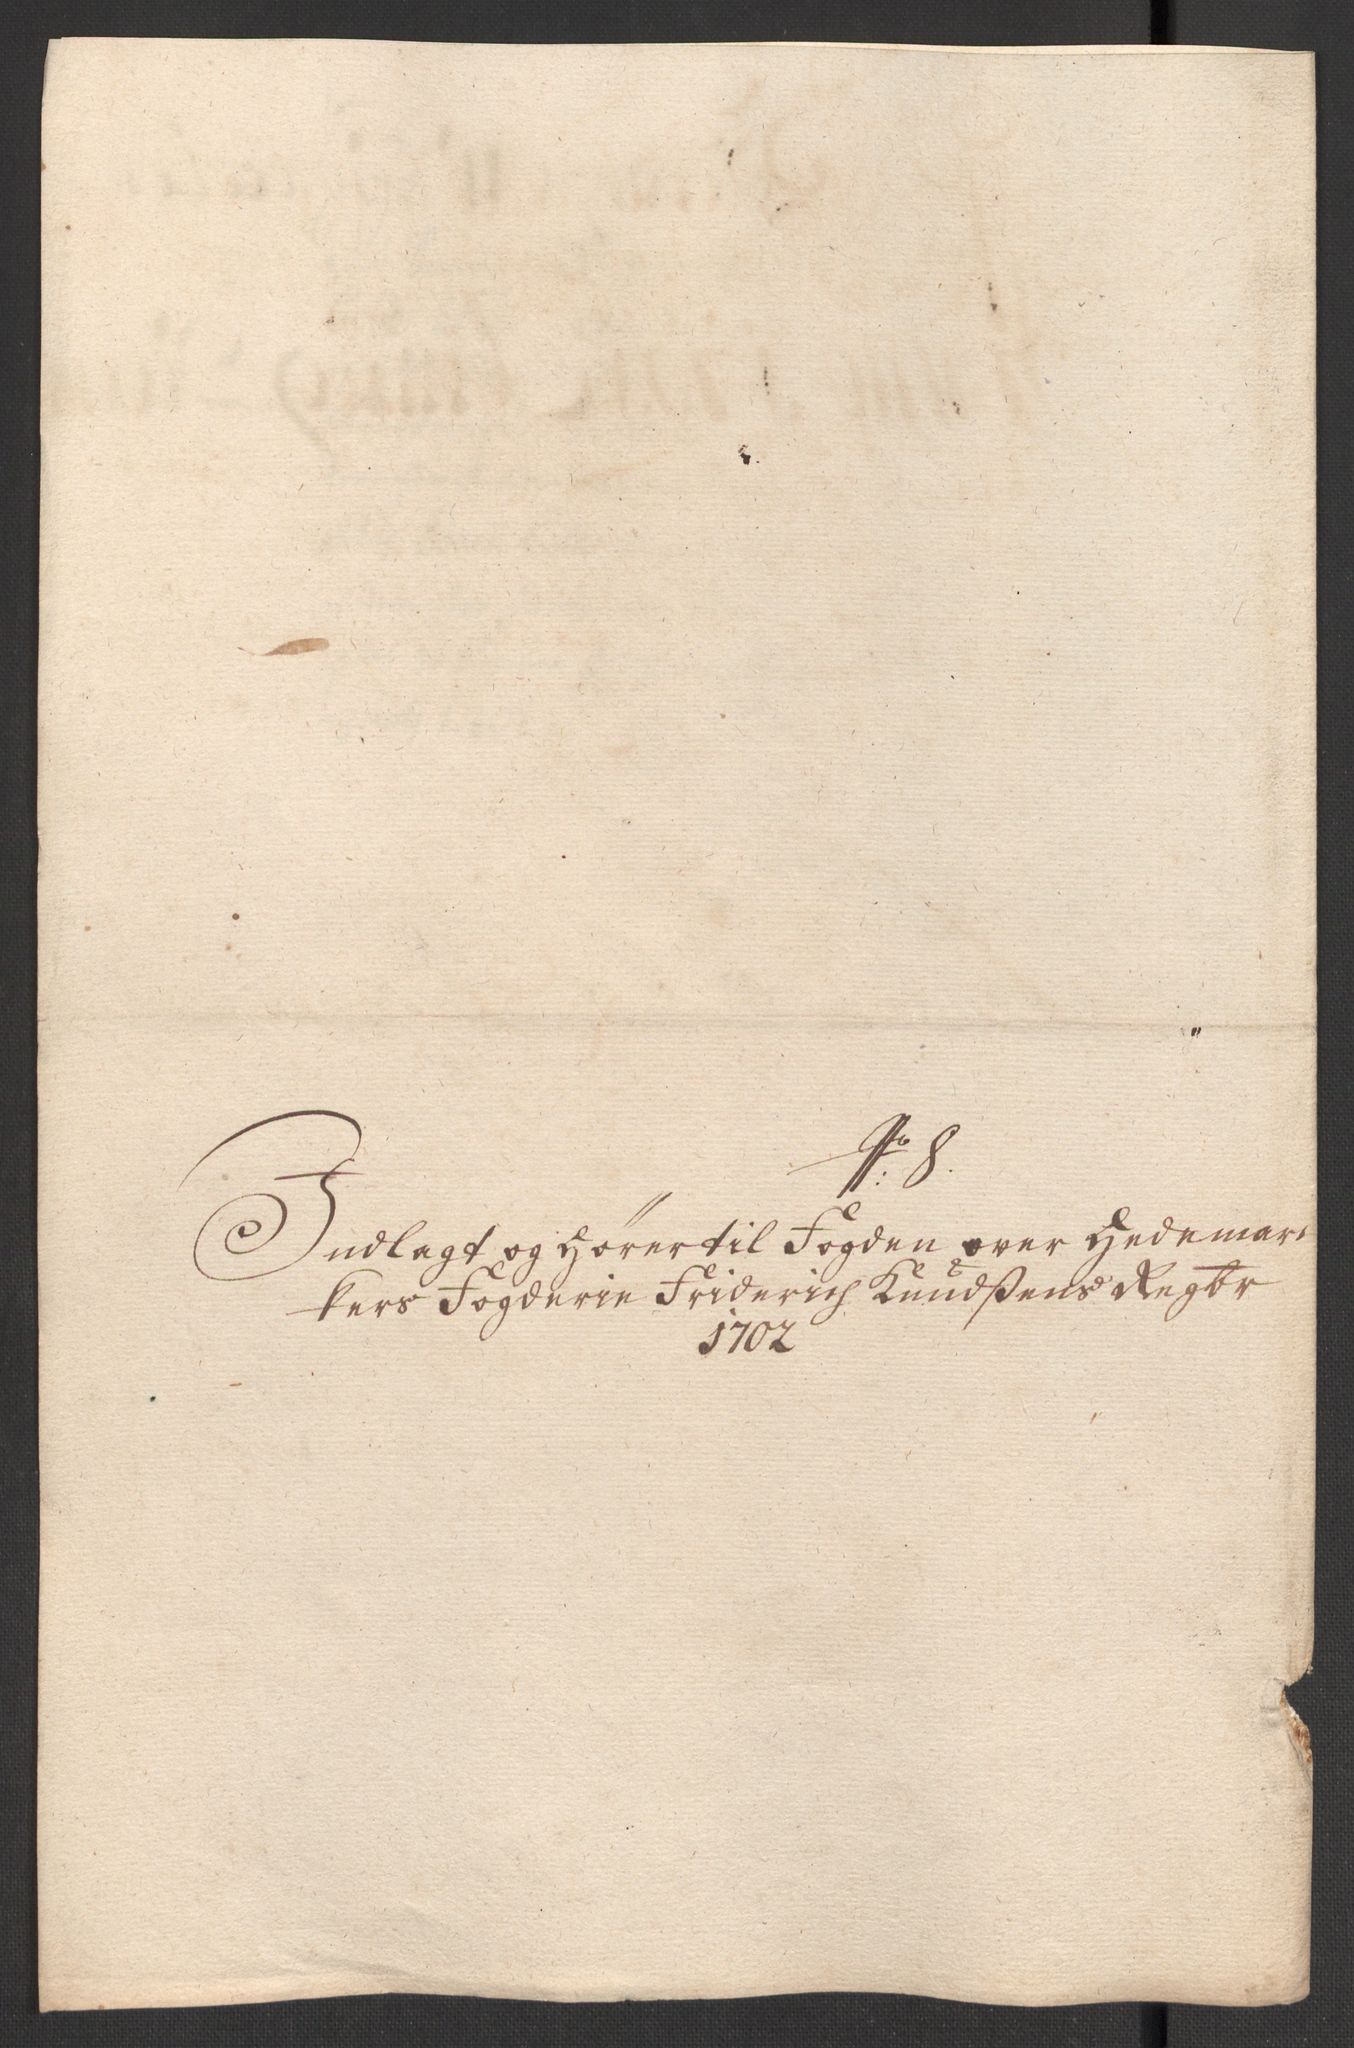 No: 8.
Indlagt og hører til Fogden over Hedemar-
kers Fogderie Friderich Knudßens Regbr
1702